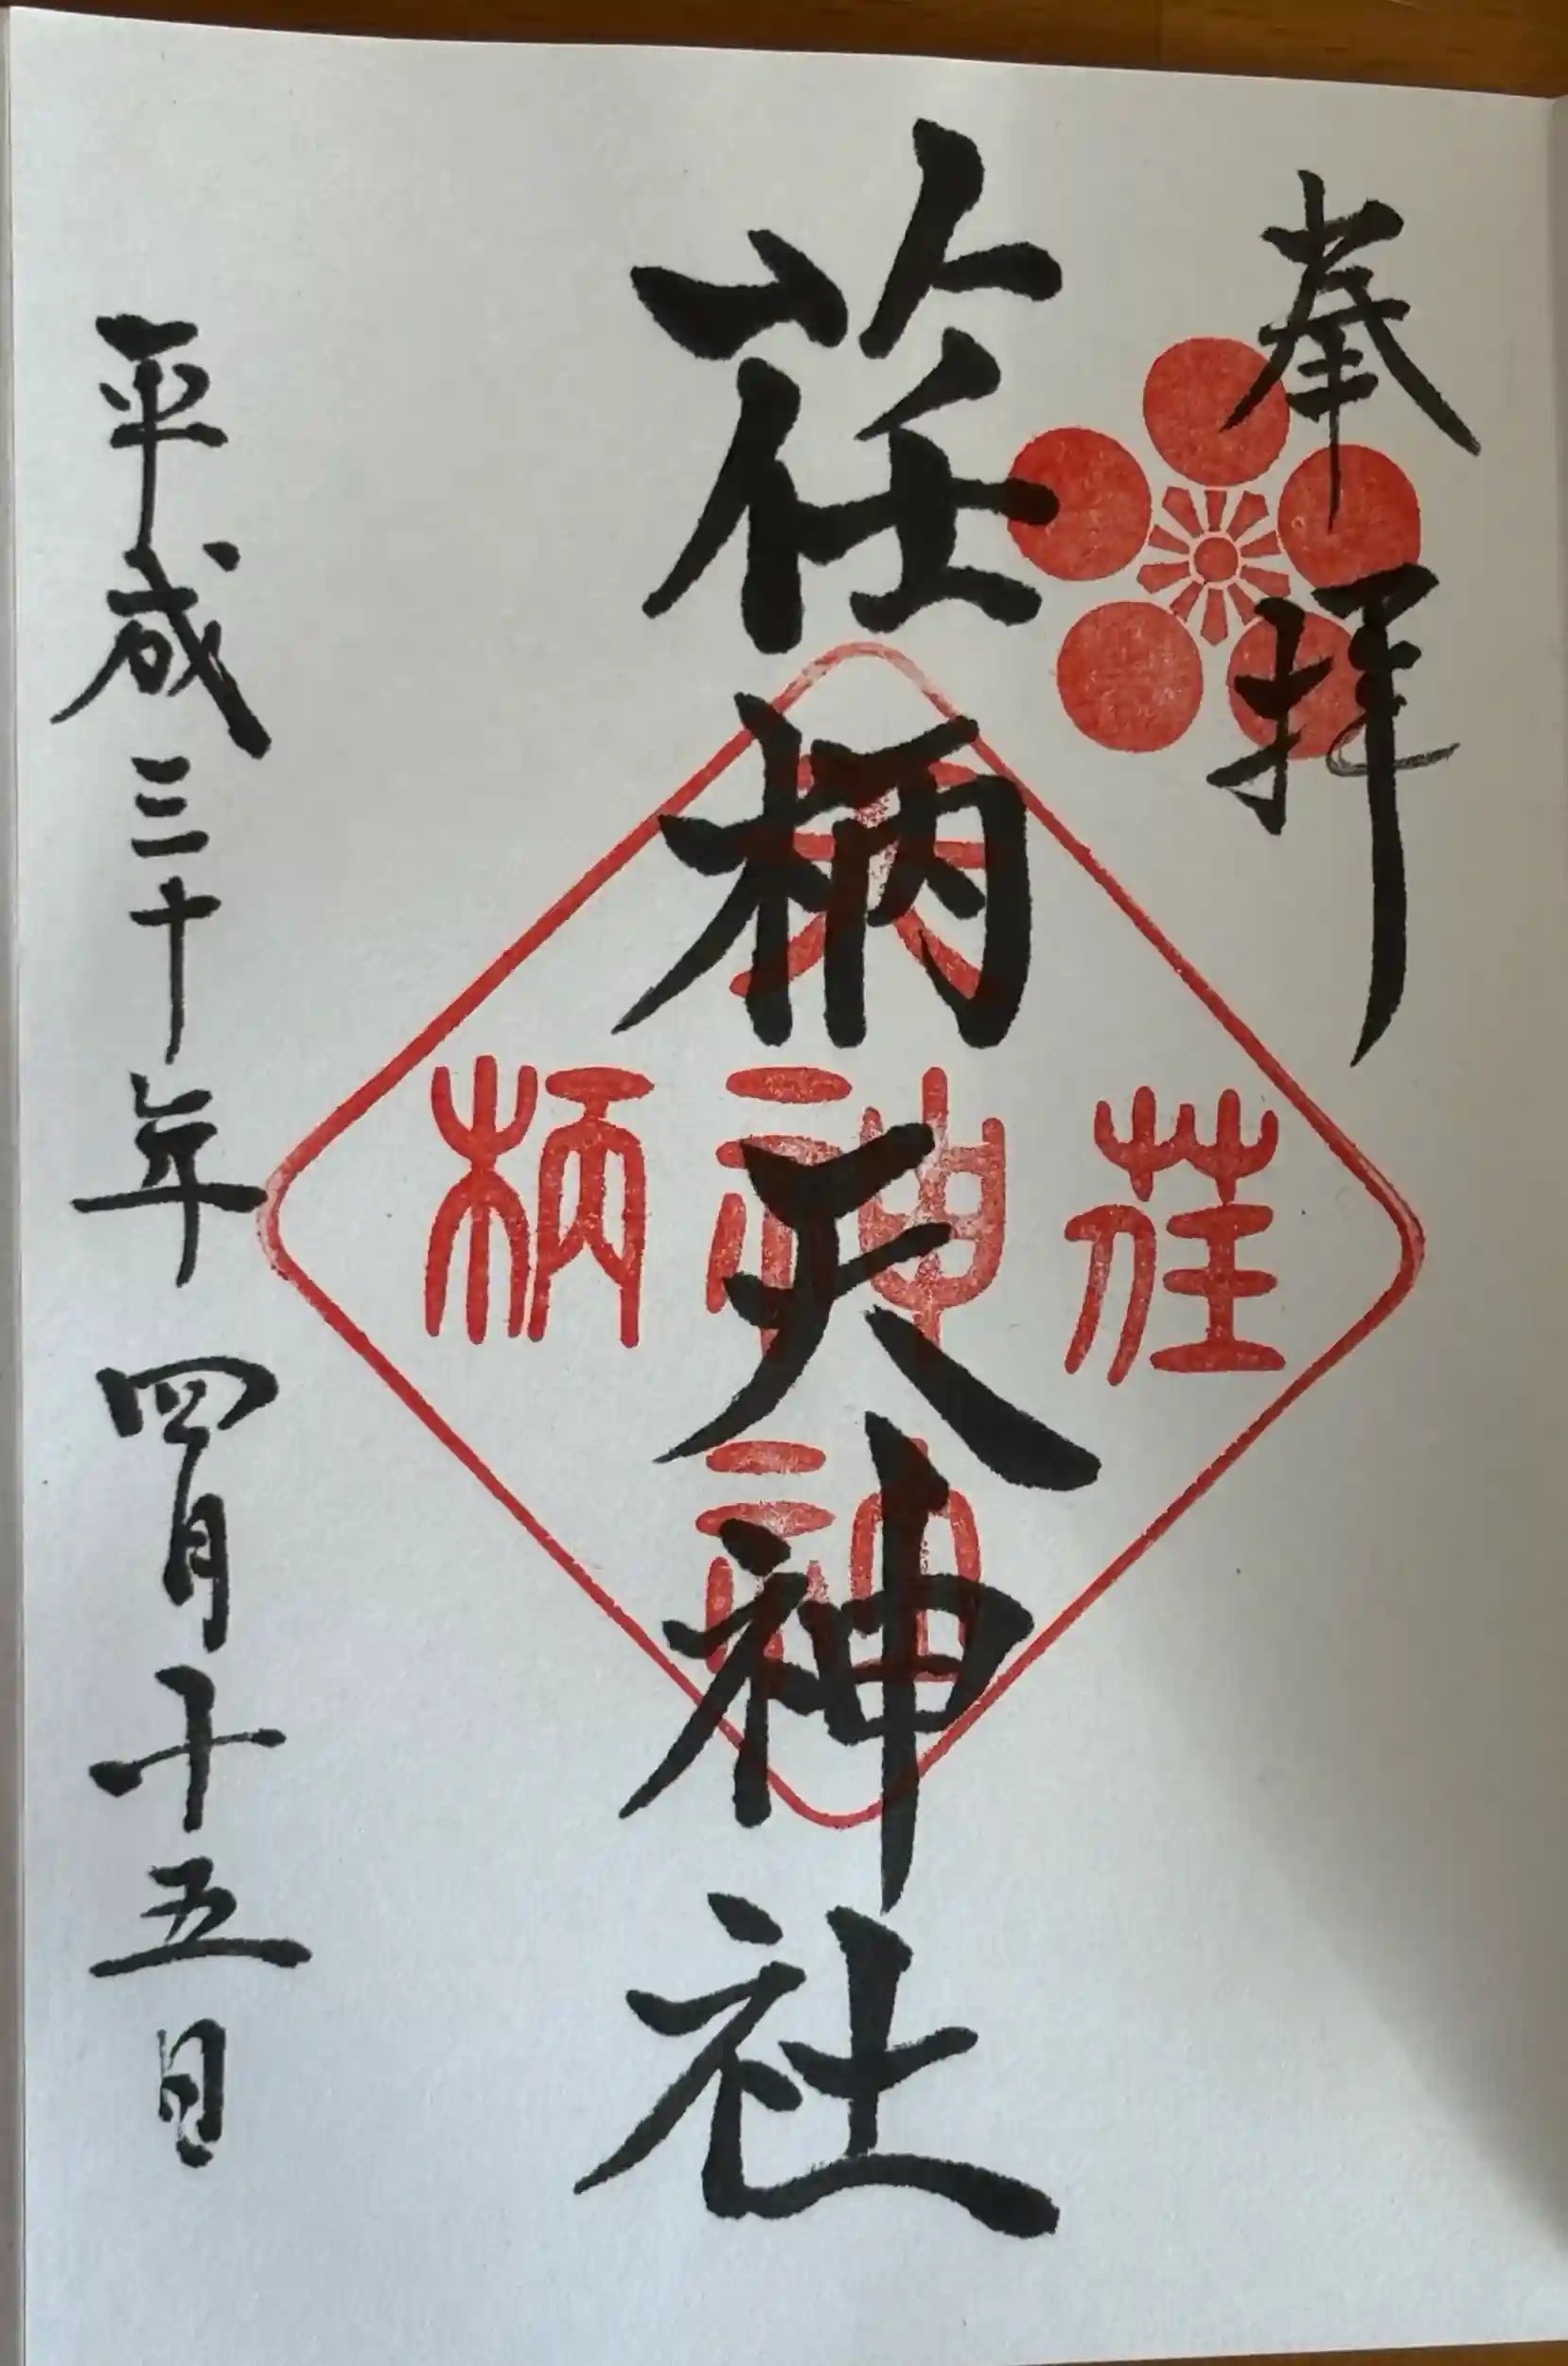 奉拝
荏柄天神社
平成三十年四月十五日
荏柄天神神